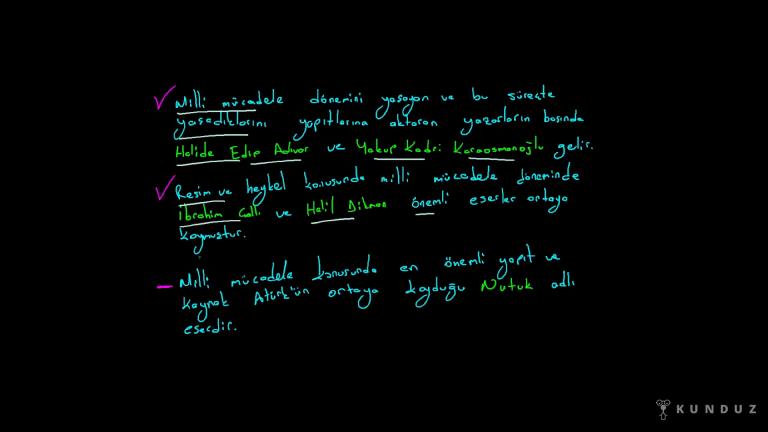 Milli mücadele dönemini yaşayan ve bu süreçte
yaşadıklarını yapıtlarına aktaran yazarların başında
Halide Edip Adıvar ve Yakup Kadri Karaosmanoğlu gelir.
Resim ve heykel konusunda milli mücadele döneminde
İbrahim Çallı ve Halil Dikmen önemli eserler ortaya
koymuştur.
Milli mücadele konusunda en önemli yapıt ve
kaynak Atürk'ün ortaya koyduğu Nutuk adlı
eserdir.
KUNDUZ